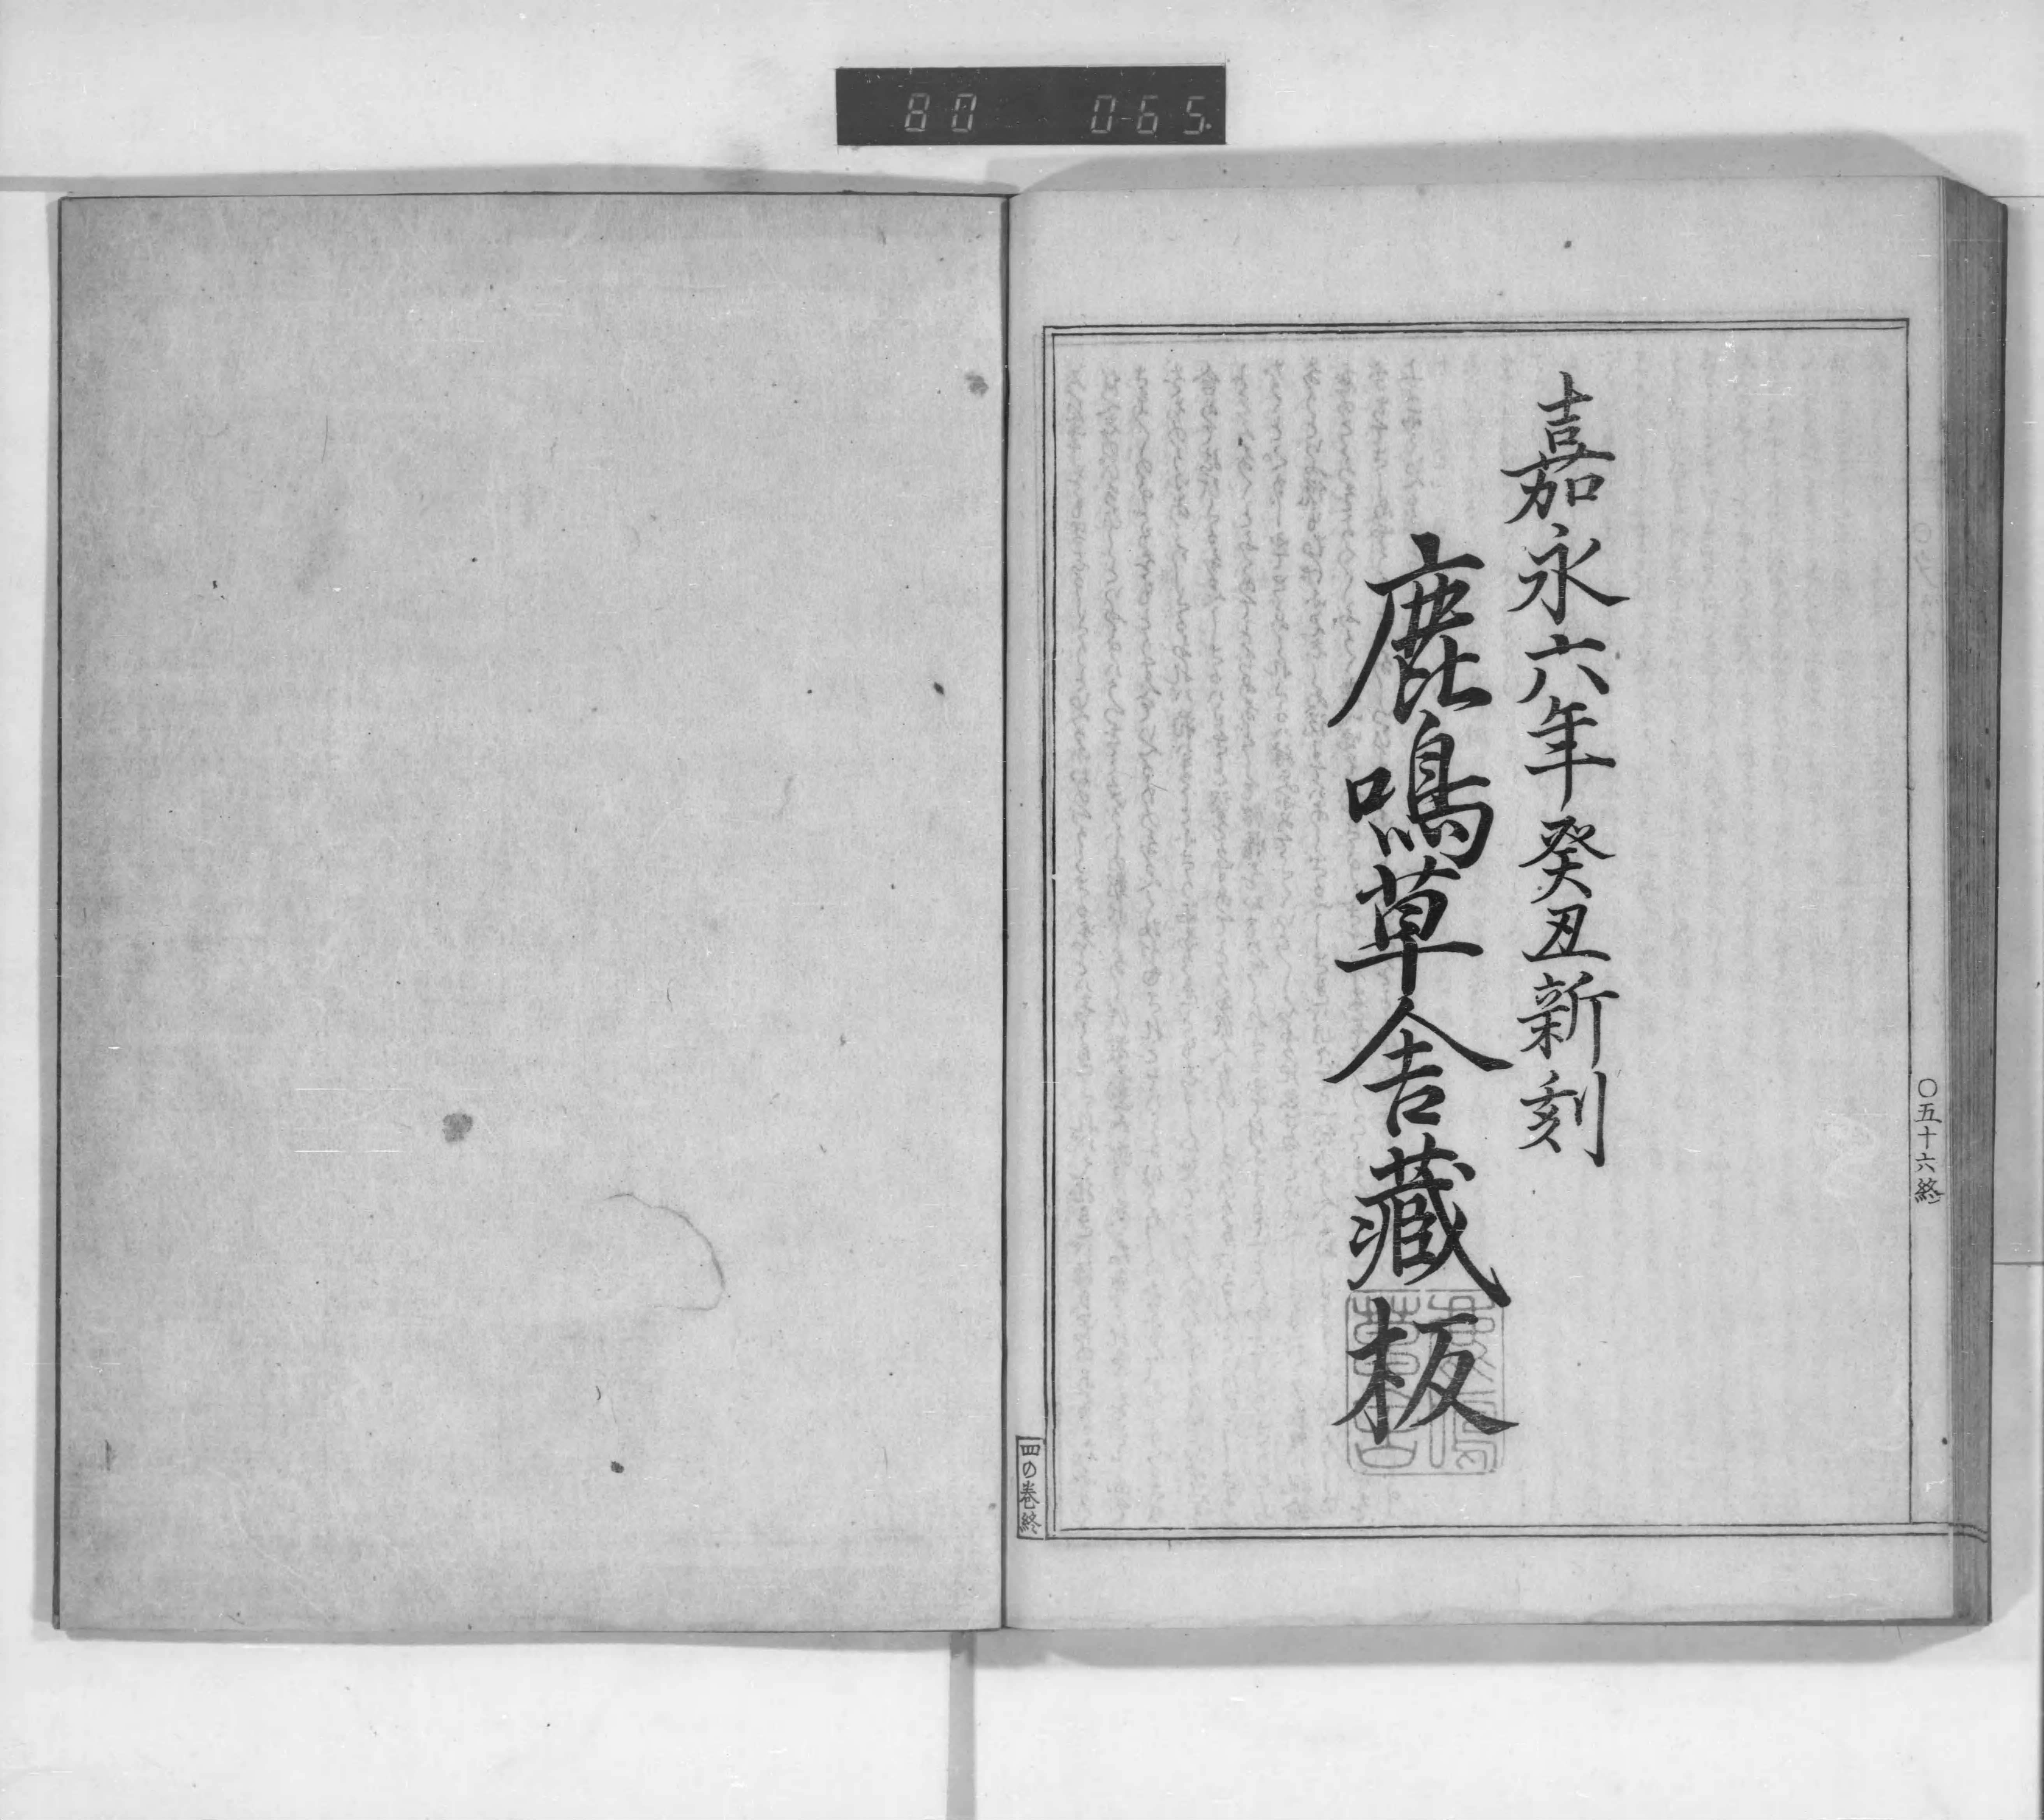 80 065
嘉永六年癸丑新刻
鹿鳴草舍藏板
〇五十六終
四の巻終